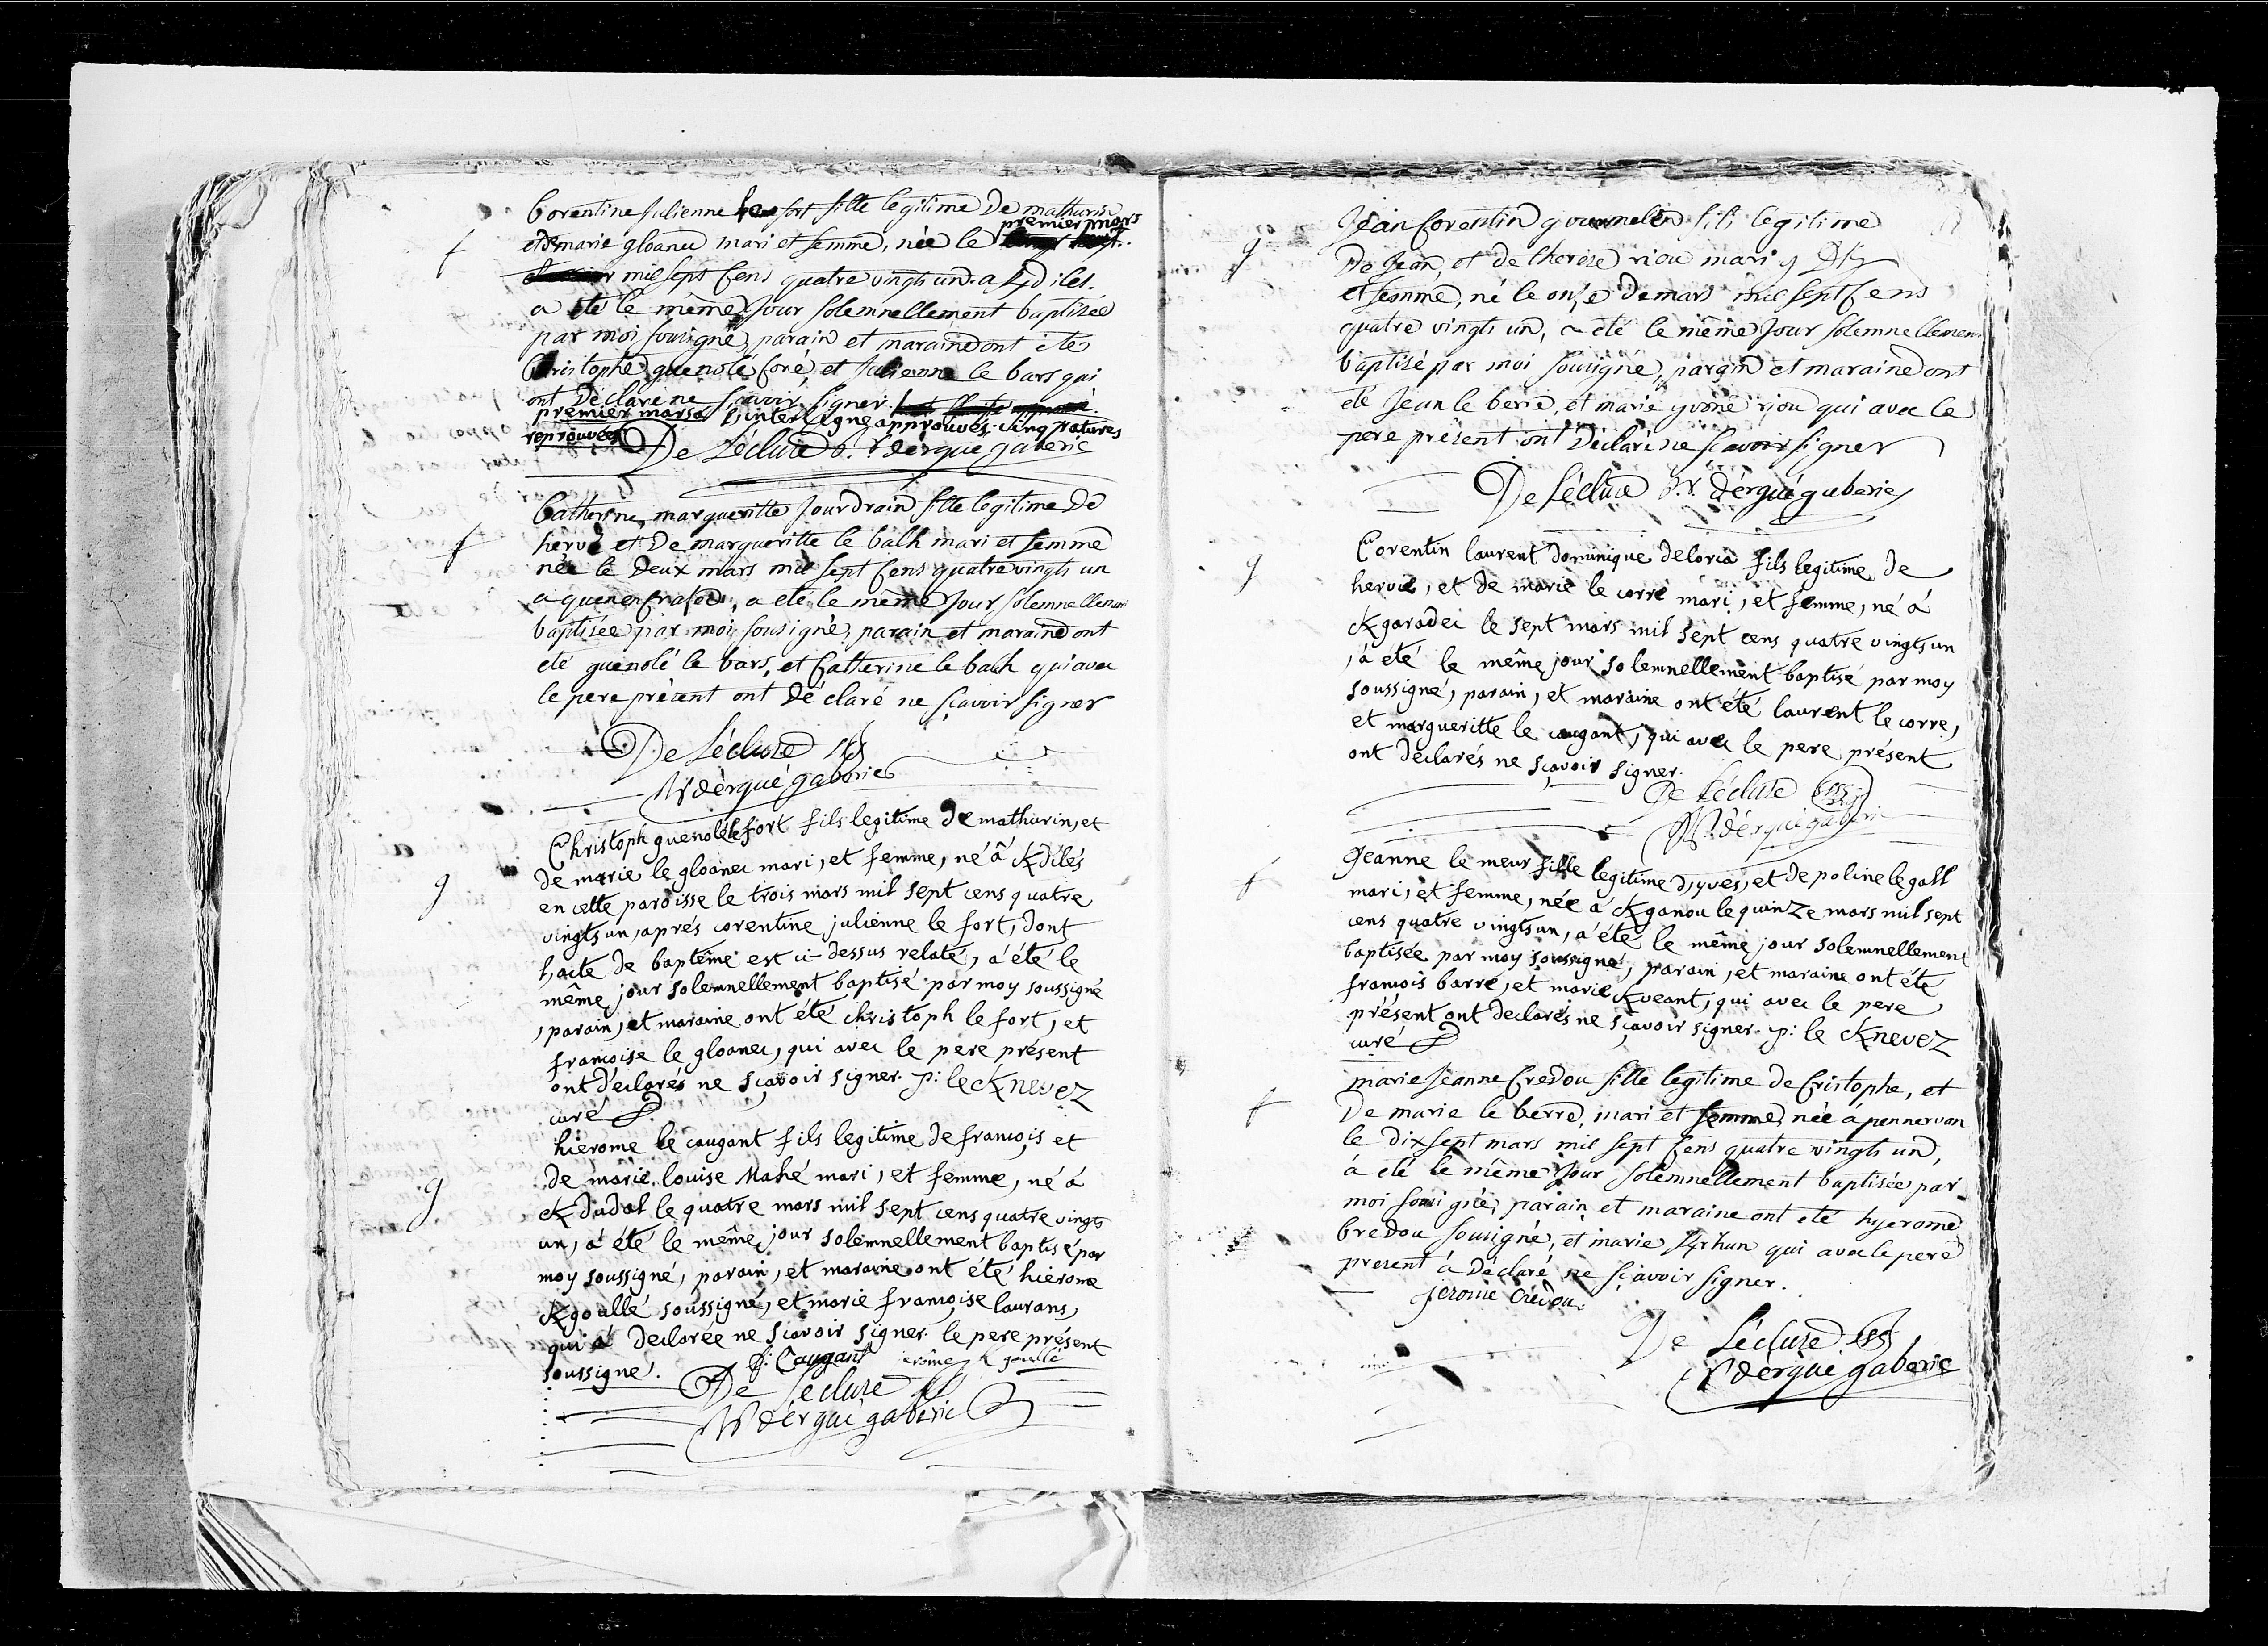 f
Corentine Julienne le fort fille legitime De mathurin
premier mars
et de marie gloanec mari et femme, née le
mil sept Cens quatre vingts un a K/dilés.
a été le même Jour solemnellement baptisée
par moi sousigné, parain et maraine ont été
Christophe guenolé foré, et Julienne le bars qui
ont Déclaré ne sçavoir signer.
premier mars l'interligne approuvés. cinq ratures
reprouvées De Lécluse V. dérgué gaberic
f
Catherine margueritte Jourdrain fille legitime De
hervé et De margueritte le balh mari et femme
née le Deux mars mil sept Cens quatre vingts un
a, a été le même Jour solemnellement
baptisée par moi sousigné, parain et maraine ont
été guenolé le bars, et Catterine le balh qui avec
le pere présent ont Déclaré ne sçavoir signer
De Lécluse
dérgué gaberic
g
Christoph guenolé le fort fils legitime De mathurin, et
de marie le gloanec mari, et femme, né à K/dilés
en cette paroisse le trois mars mil sept cens quatre
vingts un, aprés corentine julienne le fort, dont
l'acte de baptême est ci-dessus relaté, a été le
même jour solemnellement baptisé par moy soussigné
, parain, et maraine ont été christoph le fort, et
françoise le gloanec, qui avec le pere présent
ont déclarés ne sçavoir signer. p: le K/nevez
curé
g
hierome le caugant fils legitime de françois et
de marie louise Mahé mari, et femme, né à
K/dudal le quatre mars mil sept cens quatre vingts
un, a été le même jour solemnellement baptisé par
moy soussigné, parain, et maraine ont été hierome
K/goullé soussigné, et marie françoise laurans,
qui a declarée ne sçavoir signer. le pere présent
soussigné. f: Caugant jerôme K/goullé
De Lécluse
dérgué gaberic
g
Jean Corentin gourmelen fils legitime
De Jean, et de therese riou mari
et femme, né le onze De mars mil sept Cens
quatre vingts un, a été le même Jour solemnellement
baptisé par moi sousigné, parain et maraine ont
été Jean le berre, et marie yvone riou qui avec le
pere présent ont Déclaré ne sçavoir signer
De Lécluse V. dérgué gaberic
g
Corentin laurent dominique deloria fils legitime de
hervie, et de marie le corre mari, et femme, né à
K/garadei le sept mars mil sept cens quatre vingts un
, à été le même jour solemnellement baptisé par moy
soussigné, parain, et maraine ont été laurent le corre,
et margueritte le caugant, qui avec le pere présent
ont déclarés ne sçavoir signer.
De Lécluse
dérgué gaberic
f
jeanne le meur fille legitime d'yves, et de poline le gall
mari, et femme, née à K/ganou le quinze mars mil sept
cens quatre vingts un, a été le même jour solemnellement
baptisée par moy soussigné, parain, et maraine ont été
françois barre, et marie K/veant, qui avec le pere
présent ont declarés ne sçavoir signer. p: le K/nevez
curé
f
marie Jeanne Credou fille legitime de Cristophe, et
De marie le berre, mari et femme, née à pennervan
le dix sept mars mil sept Cens quatre vingts un,
à été le même Jour solemnellement baptisée par
moi sousigné, parain et maraine ont été hyerome
Credou sousigné, et marie K/hun qui avec le pere
present à Déclaré ne sçavoir signer.
jerome Crédou.
De Lécluse
dérgué gaberic